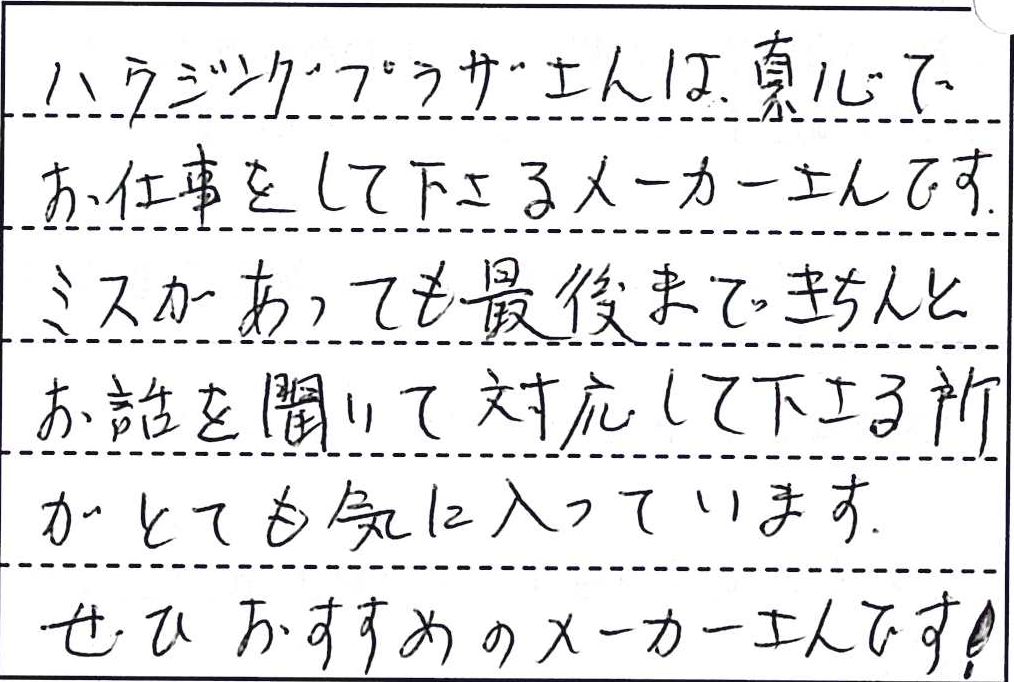 ハウジングプラザさんは、真心で
お仕事をして下さるメーカーさんです.
ミスがあっても最後まできちんと
お話を聞いて対応して下さる所
がとても気に入っています.
ぜひおすすめのメーカーさんです!